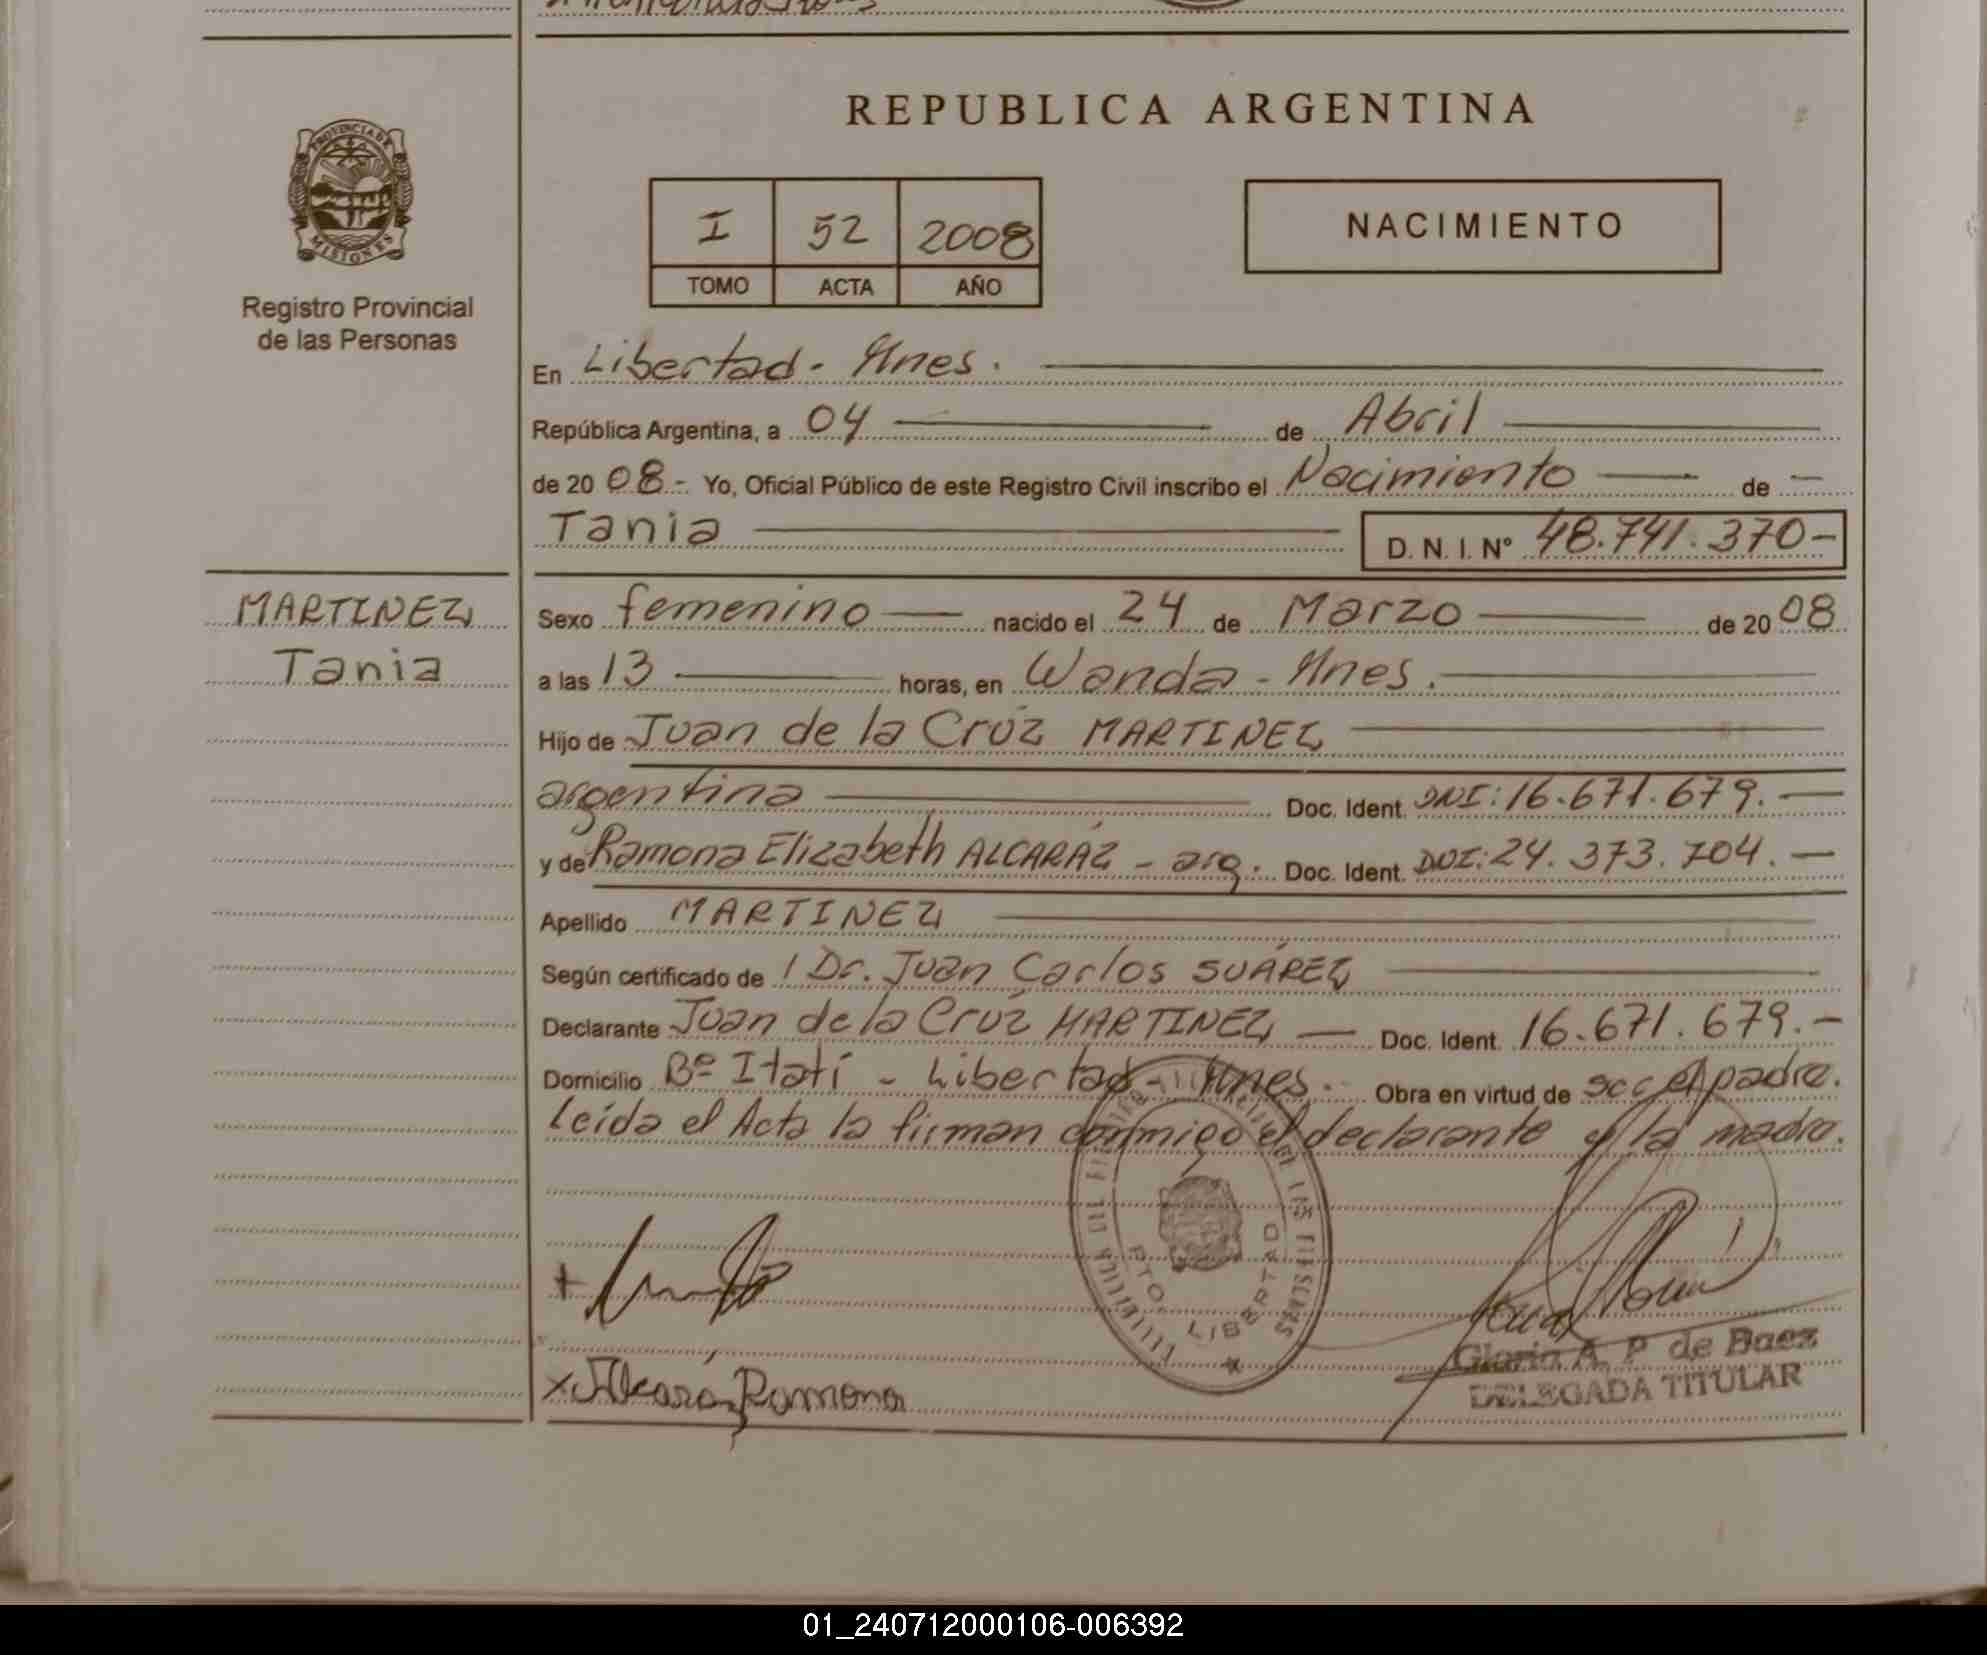 REPUBLICA ARGENTINA
PROVINCIA DE
MISIONES
Registro Provincial
de las Personas
I 52 2008
TOMO ACTA AÑO
NACIMIENTO
En Libertad - Mnes.
República Argentina, a 04 de Abril
de 20 08.- Yo, Oficial Público de este Registro Civil inscribo el Nacimiento de
Tania D. N. I. Nº 48.741.370-
MARTINEZ
Tania
Sexo femenino nacido el 24 de Marzo de 20 08
a las 13 horas, en Wanda - Mnes.
Hijo de Juan de la Crúz MARTINEZ
argentina Doc. Ident. DNI: 16.671.679.-
y de Ramona Elizabeth ALCARÁZ - arg. Doc. Ident. DNI: 24.373.704.-
Apellido MARTINEZ
Según certificado de Dr. Juan Carlos SUÁREZ
Declarante Juan de la Crúz MARTINEZ Doc. Ident. 16.671.679.-
Domicilio Bº Itatí - Libertad - Mnes. Obra en virtud de ser el padre.
Leída el Acta la firman conmigo el declarante y la madre.
PTO. LIBERTAD
Alcará Ramona
Gloria A. P. de Baez
DELEGADA TITULAR
01_240712000106-006392